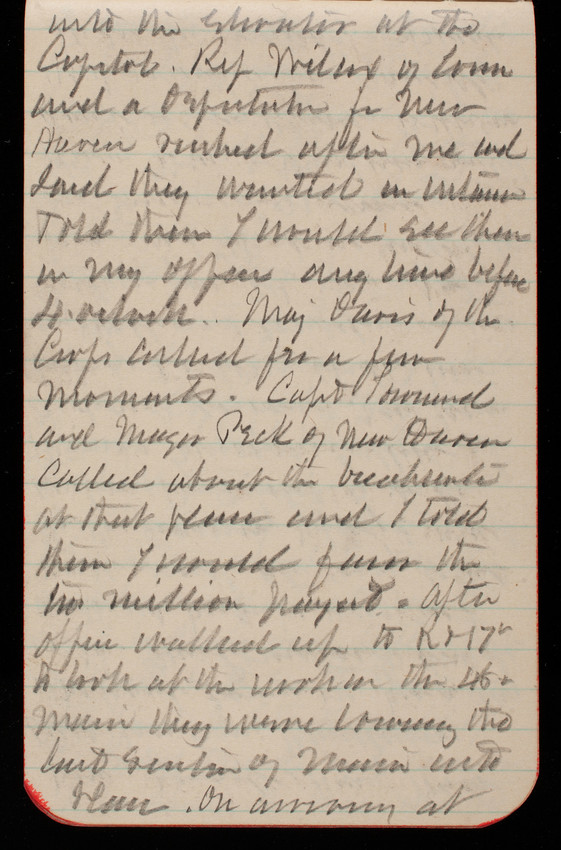 into the elevator at the
Capitol. Rep Wilcox of Conn
and a Deputation fr New
Haven rushed after me and
said they wanted an interview
Told them I would see them
in my office any time before
4 oclock. Maj Davis of the
Corps called for a few
moments. Capt Townsend
and Mayor Peck of New Haven
called about the breakwater
at that place and I told
them I would favor the
two million project. After
office walked up to R & 17th
to look at the work on the 48
main they were lowering the
last section of main into
place. On arriving at